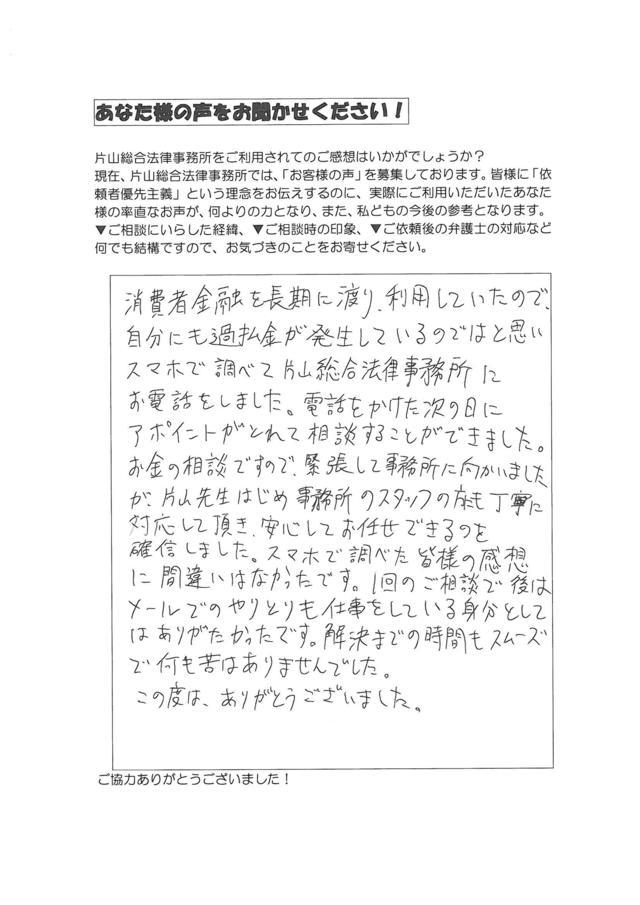 あなた様の声をお聞かせください!
片山総合法律事務所をご利用されてのご感想はいかがでしょうか?
現在、片山総合法律事務所では、「お客様の声」を募集しております。皆様に「依
頼者優先主義」という理念をお伝えするのに、実際にご利用いただいたあなた
様の率直なお声が、何よりの力となり、また、私どもの今後の参考となります。
▼ご相談にいらした経緯、▼ご相談時の印象、▼ご依頼後の弁護士の対応など
何でも結構ですので、お気づきのことをお寄せください。
消費者金融を長期に渡り、利用していたので、
自分にも過払金が発生しているのではと思い
スマホで調べて片山総合法律事務所に
お電話をしました。電話をかけた次の日に
アポイントがとれて相談することができました。
お金の相談ですので、緊張して事務所に向かいました
が、片山先生はじめ事務所のスタッフの方も丁寧に
対応して頂き、安心してお任せできるのを
確信しました。スマホで調べた皆様の感想
に間違いはなかったです。1回のご相談で後は
メールでのやりとりも仕事をしている身分として
はありがたかったです。解決までの時間もスムーズ
で何も苦はありませんでした。
この度は、ありがとうございました。
ご協力ありがとうございました!